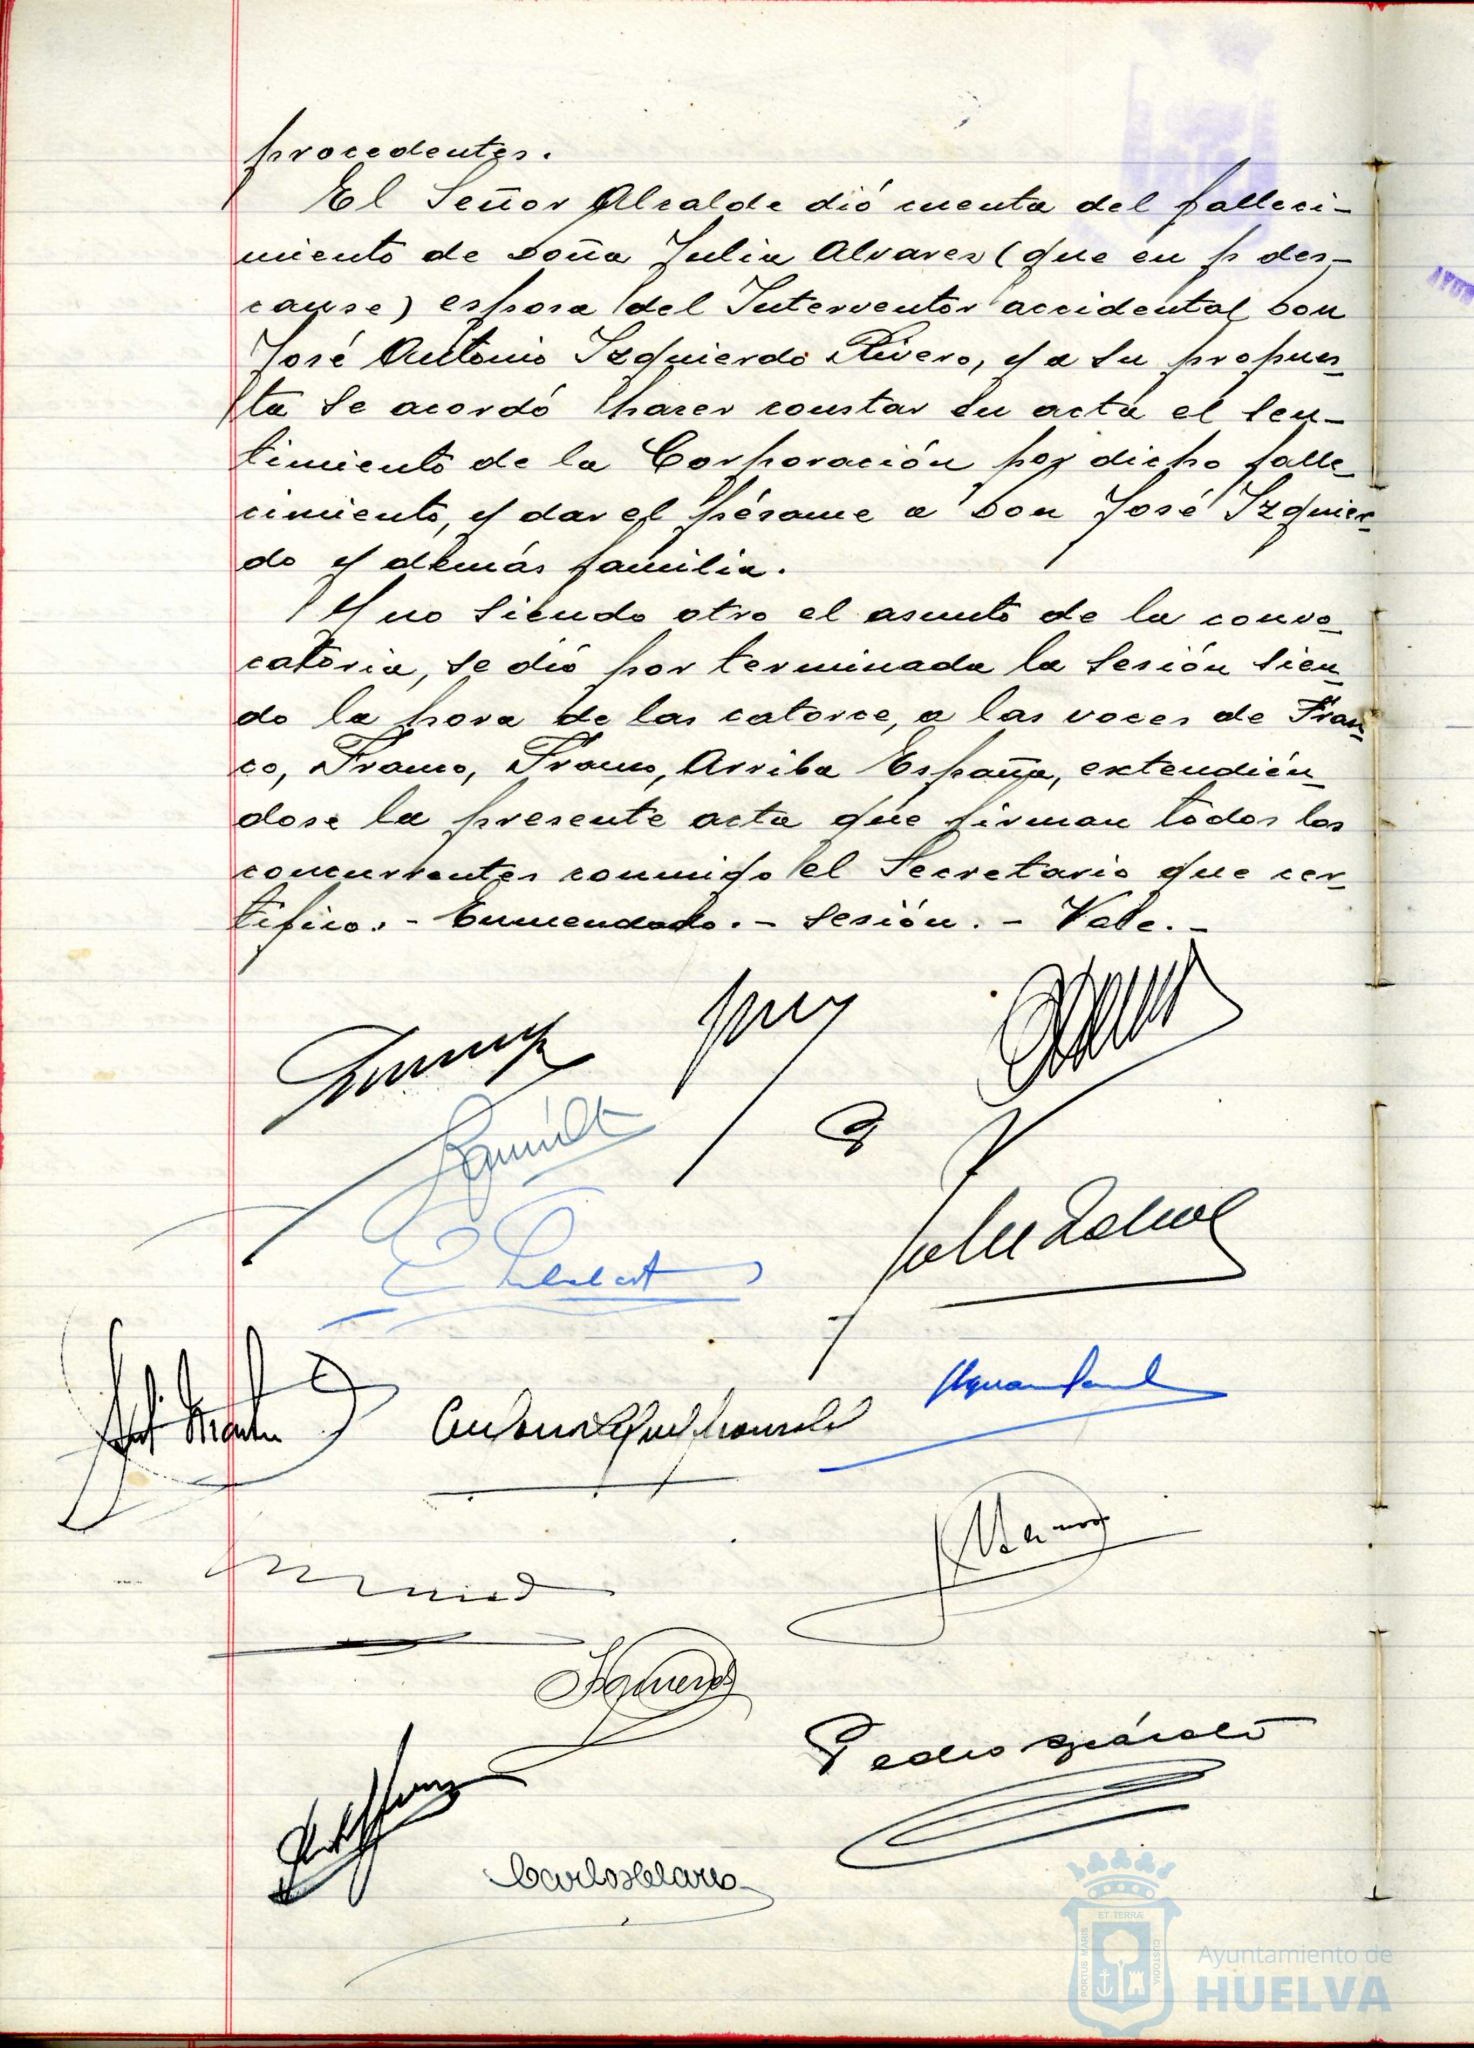 procedentes.
El Señor Alcalde dió cuenta del falleci-
miento de Doña Julia Alvarez (que en p des-
canse) esposa del Interventor accidental Don
José Antonio Izquierdo Rivero, y a su propues-
ta se acordó hacer constar en acta el sen-
timiento de la Corporación por dicho falle-
cimiento, y dar el pésame a Don José Izquier-
do y demás familia.
Y no siendo otro el asunto de la convo-
catoria, se dió por terminada la sesión sien-
do la hora de las catorce, a las voces de Fran-
co, Franco, Franco, Arriba España, extendién-
dose la presente acta que firman todos los
concurrentes conmigo el Secretario que cer-
tifico.- Enmendado.- Sesión.- Vale.-
Izquierdo
Pedro
Carlos
ET TERRÆ
PORTUS MARIS
CUSTODIA
Ayuntamiento de
HUELVA